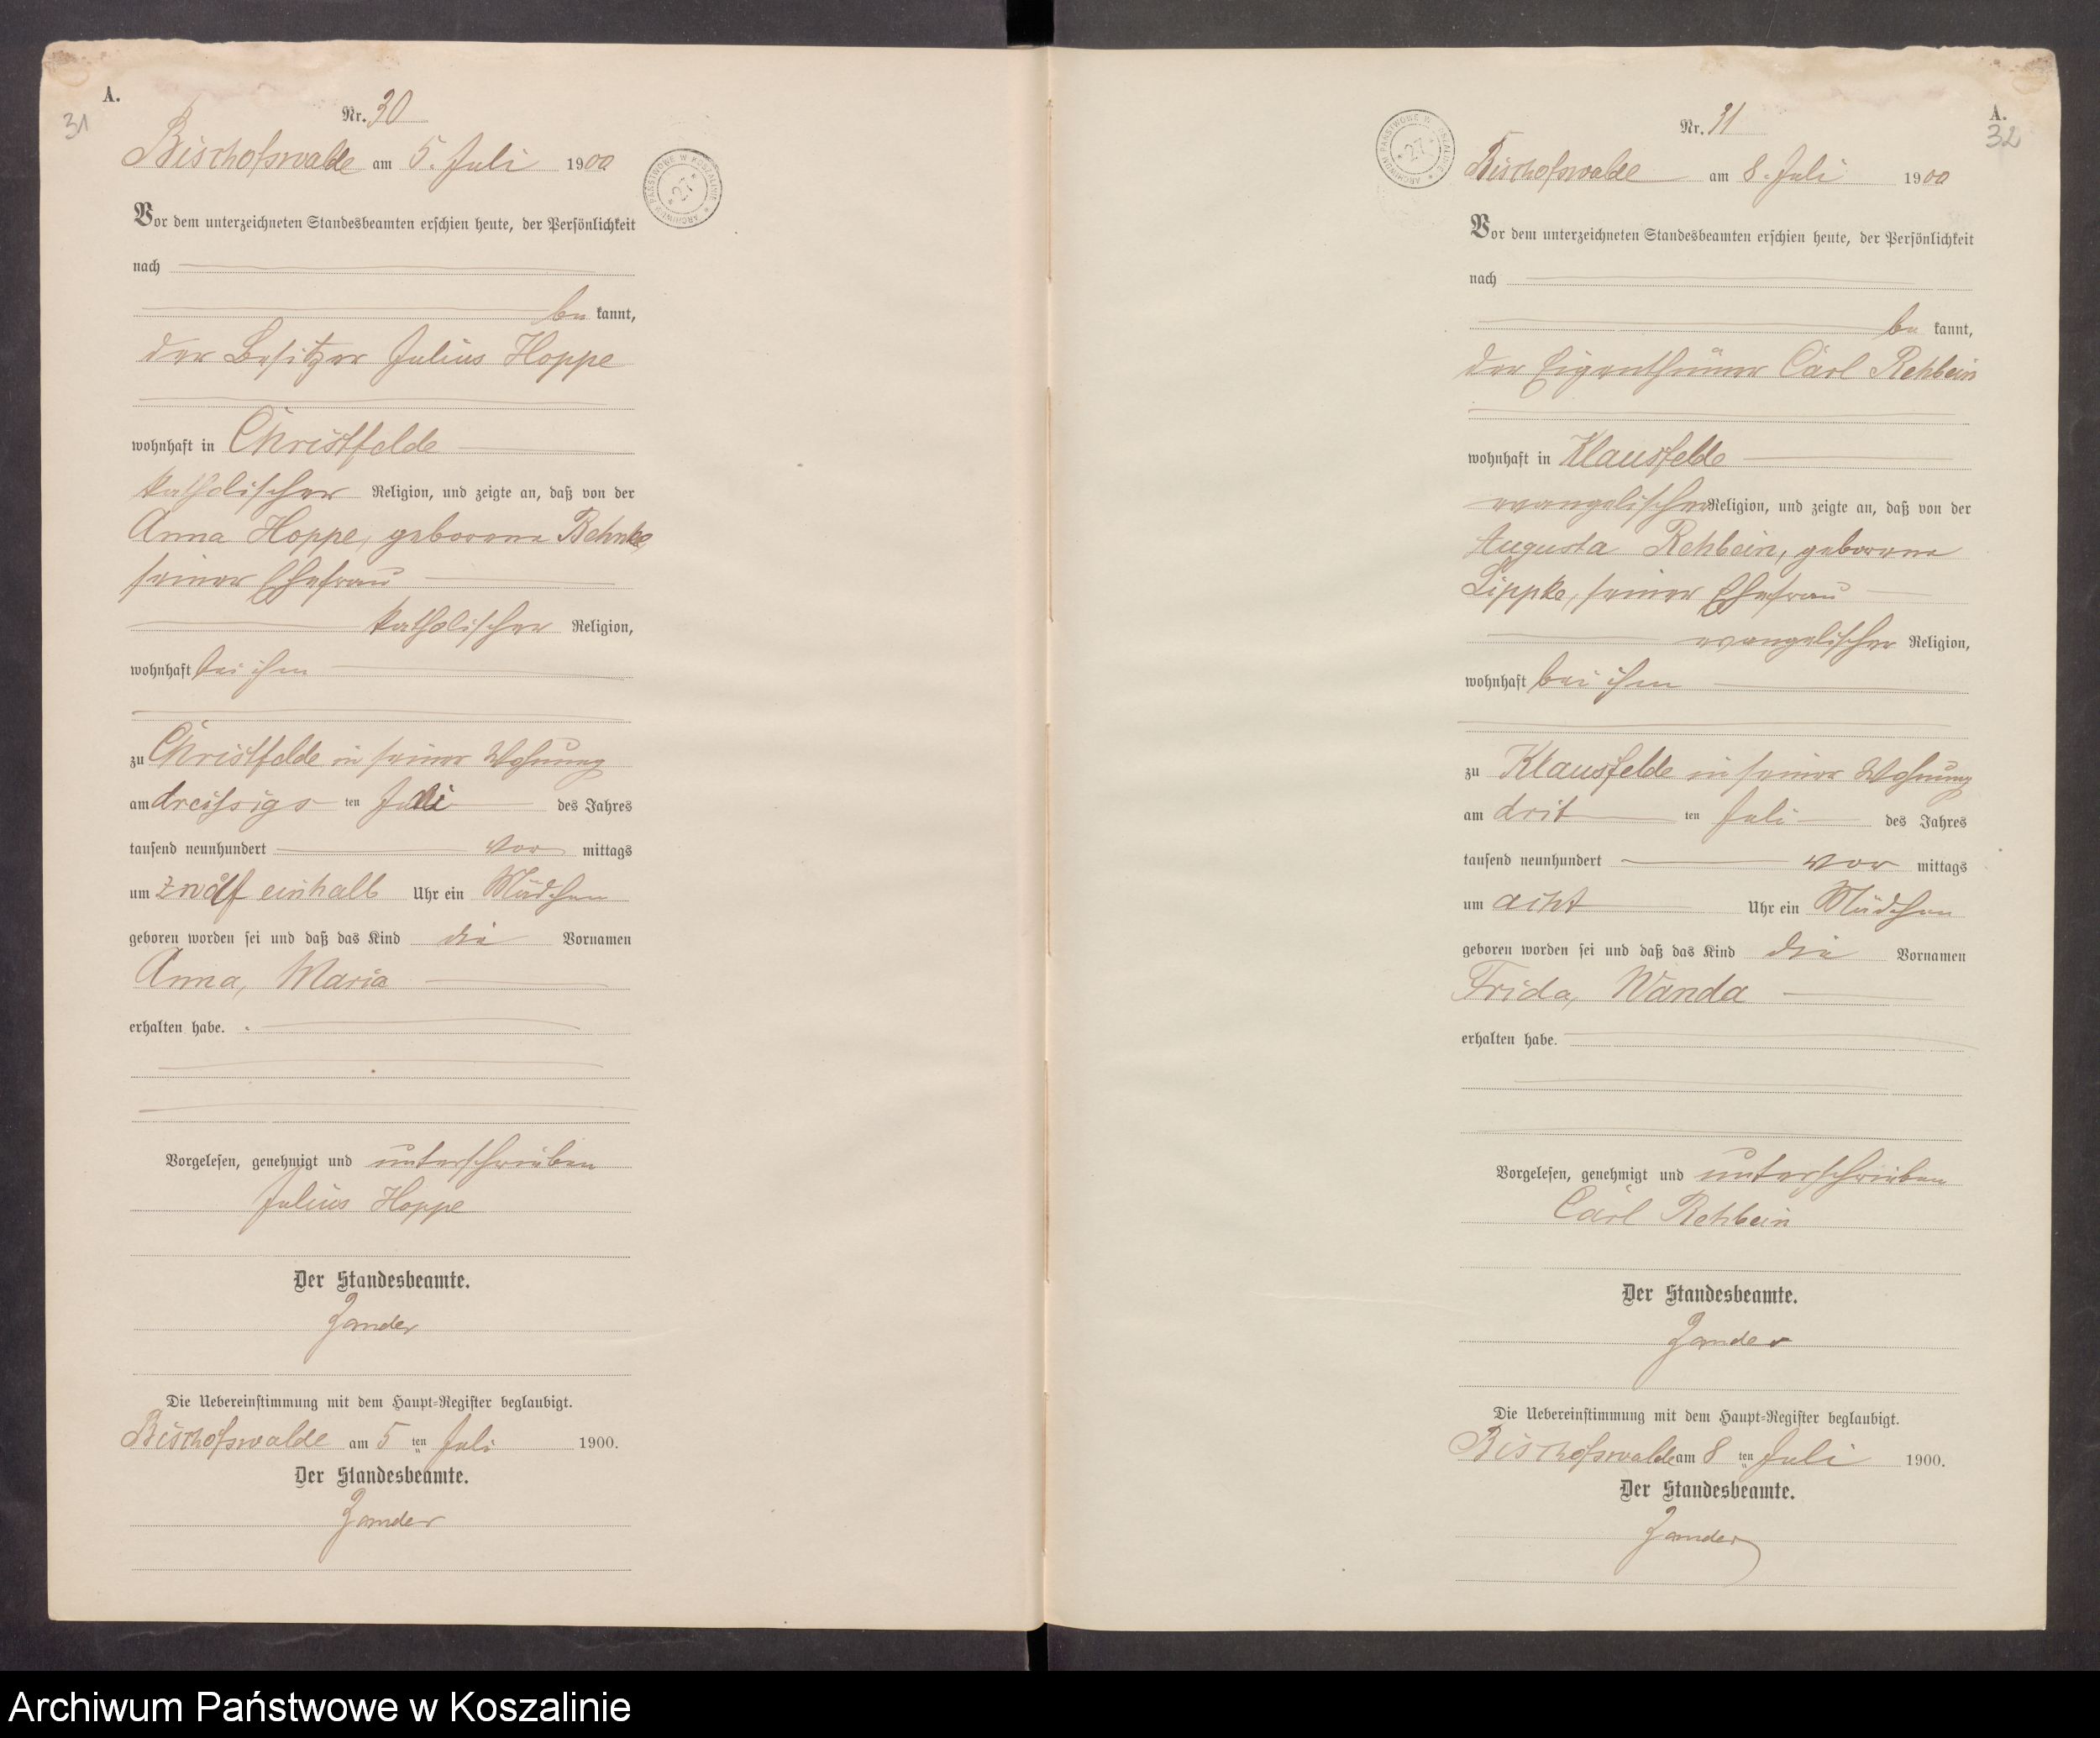 A.
31
Nr. 30
Bischofswalde am 5. Juli 1900
Vor dem unterzeichneten Standesbeamten erschien heute, der Persönlichkeit
nach
be kannt,
der Besitzer Julius Hoppe
wohnhaft in Christfelde
katholischer Religion, und zeigte an, daß von der
Anna Hoppe, geborene Behnke,
seiner Ehefrau
katholischer Religion,
wohnhaft bei ihm
zu Christfelde in seiner Wohnung
am dreißigs ten Juli des Jahres
tausend neunhundert vor mittags
um zwölf einhalb Uhr ein Mädchen
geboren worden sei und daß das Kind die Vornamen
Anna, Maria
erhalten habe.
Vorgelesen, genehmigt und unterschrieben
Julius Hoppe
Der Standesbeamte.
Zander
Die Uebereinstimmung mit dem Haupt-Register beglaubigt.
Bischofswalde am 5 ten Juli 1900.
Der Standesbeamte.
Zander
ARCHIWUM PAŃSTWOWE W KOSZALINIE
27
A.
32
Nr. 31
Bischofswalde am 8. Juli 1900
Vor dem unterzeichneten Standesbeamten erschien heute, der Persönlichkeit
nach
be kannt,
der Eigenthümer Carl Rehbein
wohnhaft in Klausfelde
evangelischer Religion, und zeigte an, daß von der
Augusta Rehbein, geborene
Lippke, seiner Ehefrau
evangelischer Religion,
wohnhaft bei ihm
zu Klausfelde in seiner Wohnung
am drit ten Juli des Jahres
tausend neunhundert vor mittags
um acht Uhr ein Mädchen
geboren worden sei und daß das Kind die Vornamen
Frida, Wanda
erhalten habe.
Vorgelesen, genehmigt und unterschrieben
Carl Rehbein
Der Standesbeamte.
Zander
Die Uebereinstimmung mit dem Haupt-Register beglaubigt.
Bischofswalde am 8 ten Juli 1900.
Der Standesbeamte.
Zander
ARCHIWUM PAŃSTWOWE W KOSZALINIE
27
Archiwum Państwowe w Koszalinie